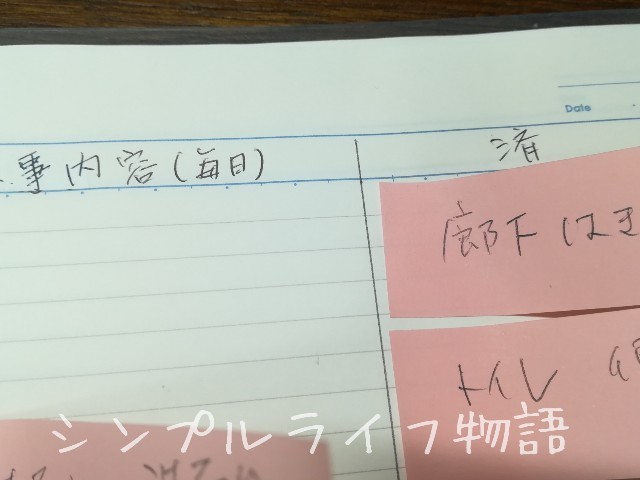 Date
事内容(毎日)
済
廊下はき
トイレ
シンプルライフ物語